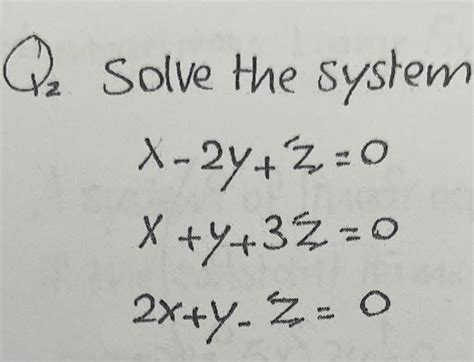 Q₂ Solve the system
x - 2y + z = 0
x + y + 3z = 0
2x + y - z = 0